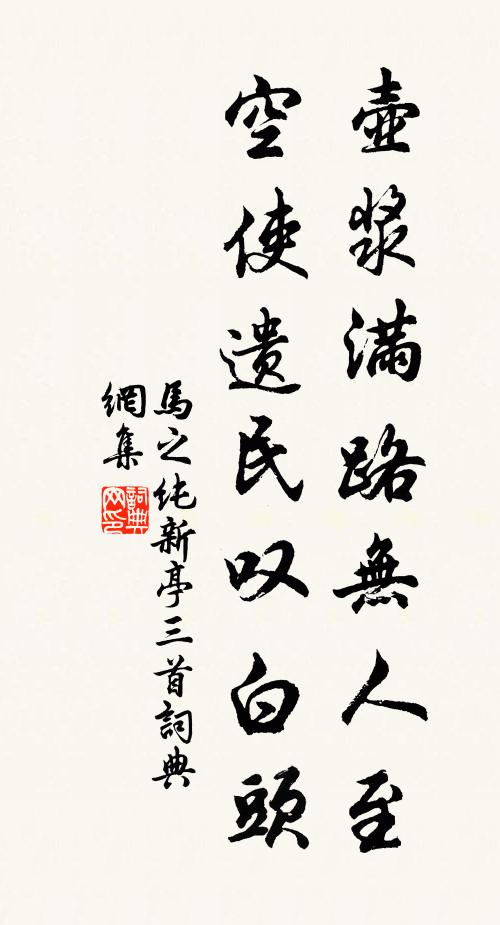 壺漿滿路無人至
空使遺民叹白頭
馬之純新亭三首詞典
網集
詞典
网印